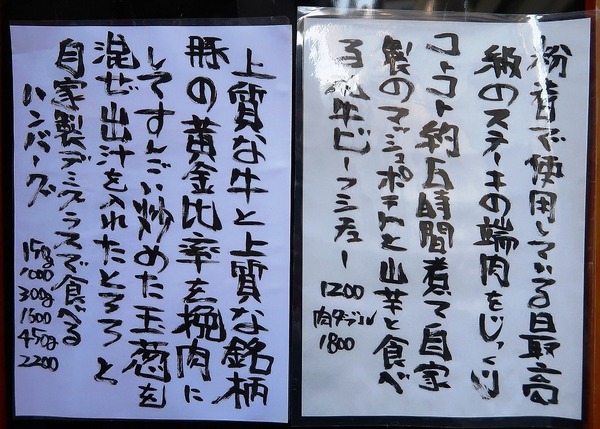 粉省で使用している最高
級のステーキの端肉をじっくり
コトコト約五時間煮て自家
製のマッシュポテトと山芋と食べ
る 牛ビーフシチュー
1200
肉ダブル
1800
上質な牛と上質な銘柄
豚の黄金比率を挽肉に
してすんごい炒めた玉葱を
混ぜ出汁を入れたとろろと
自家製デミグラスで食べる
ハンバーグ
150g
1000
300g
1500
450g
2200